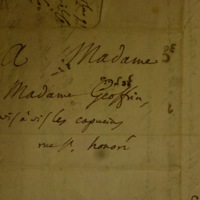 A Madame
Madame Geoffrin,
vis à vis les capucins
rue St. honoré